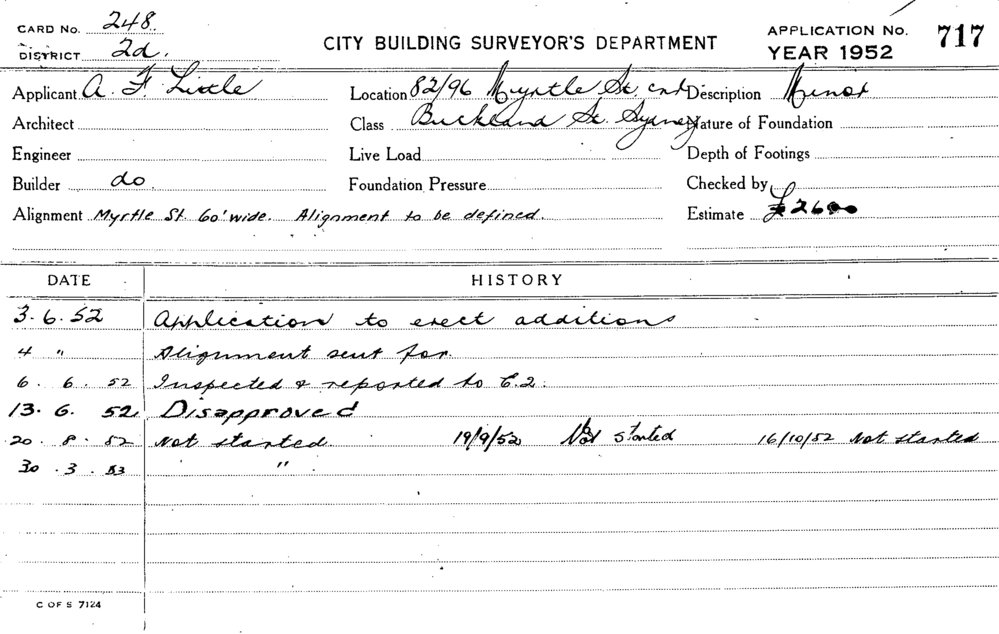 CARD No. 248.
DISTRICT 2d.
CITY BUILDING SURVEYOR'S DEPARTMENT
APPLICATION No. 717
YEAR 1952
Applicant A. F. Little Location 82/96 Myrtle St. cnr Description Minor
Architect Class Buckland St. Sydney Nature of Foundation
Engineer Live Load Depth of Footings
Builder do Foundation Pressure Checked by
Alignment Myrtle St. 60' wide. Alignment to be defined. Estimate £2600
DATE HISTORY
3.6.52 Application to erect additions
4 " Alignment sent for.
6.6.52 Inspected & reported to C.2.
13.6.52 Disapproved
20.8.52 Not started. 19/9/52 Not started 16/10/52 Not started
30.3.53 "
C OF S 7124